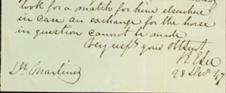 look for a match for him elsewhere
in case an exchange for the horse
in question cannot be made
Very resp'y your obt Sevt
28 Decr 47
Dr Martine